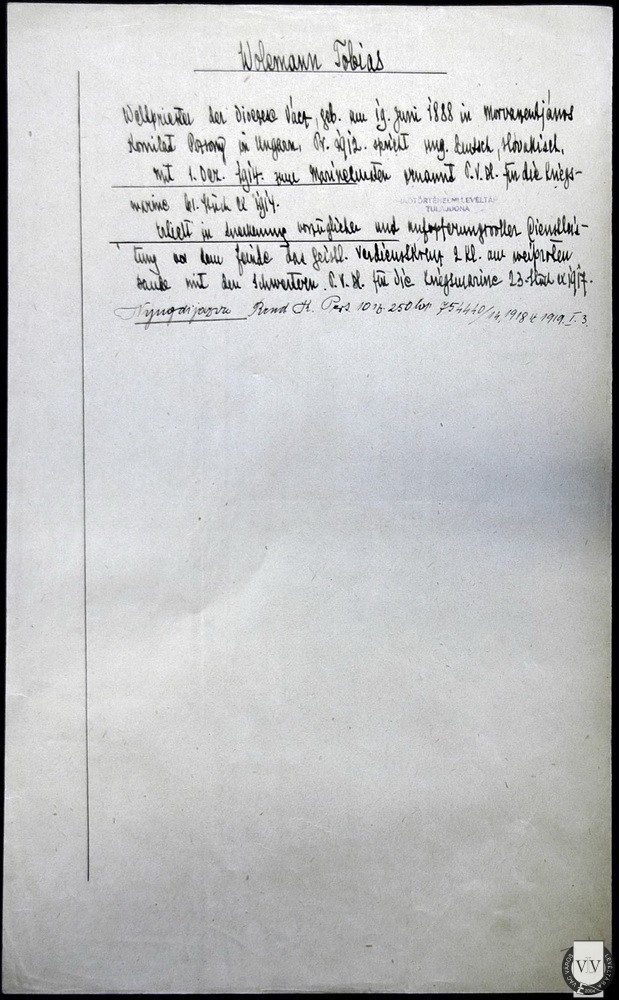 Wolemann Tobias
Weltpriester der Diozese Vácz, geb. am 19. Juni 1888 in Morvaszentjános
Komitat Pozsony in Ungarn. Pr. 1912. spricht ung. deutsch, slovakisch.
mit 1. Dez. 1914. zum Marinekuraten ernannt P.V.Bl. für die Kriegs-
marine 61. Stück ex 1914.
HADTÖRTÉNELMI LEVÉLTÁR
TULAJDONA
Erhielt in Anerkennung vorzüglicher und aufopferungsvoller Dienstleis-
tung vor dem Feinde das geistl. Verdienstkreuz 2 Kl. am weißroten
Bande mit den Schwertern. P.V.Bl. für die Kriegsmarine 23. Stück ex 1917.
Nyugdijazva Rend K. Pers 10 sz. 250 lap 754440/14, 1918 t 1919. I. 3.